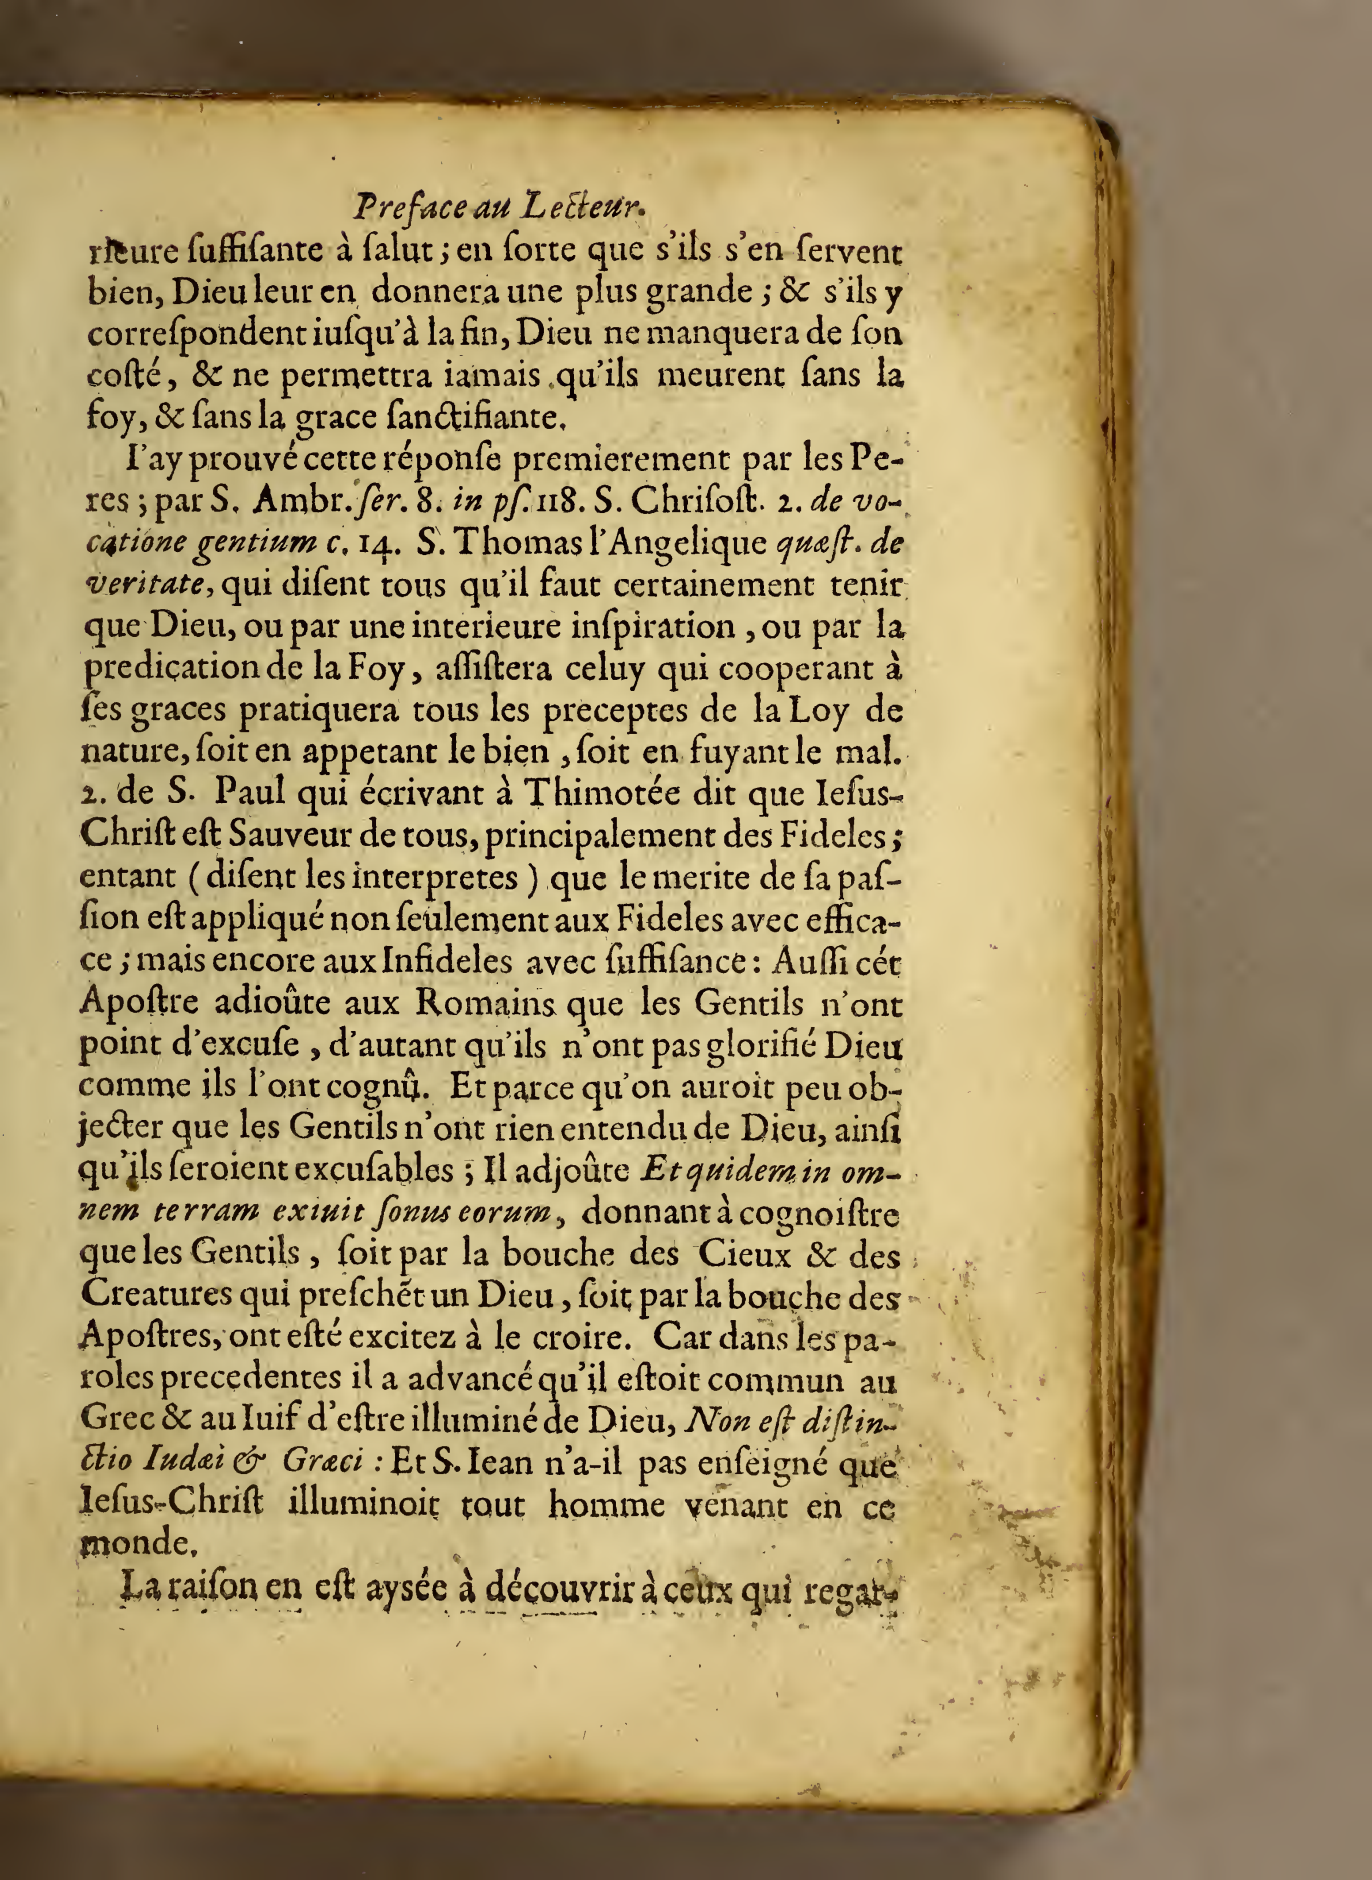 Preface au Lecteur.
rieure ſuffiſante à ſalut ; en ſorte que s'ils s'en ſervent
bien, Dieu leur en donnera une plus grande ; & s'ils y
correſpondent iuſqu'à la fin, Dieu ne manquera de ſon
coſté, & ne permettra iamais qu'ils meurent ſans la
foy, & ſans la grace ſanctifiante.
I'ay prouvé cette réponſe premierement par les Pe-
res ; par S. Ambr. ſer. 8. in pſ. 118. S. Chriſoſt. 2. de vo-
catione gentium c. 14. S. Thomas l'Angelique quæſt. de
veritate, qui diſent tous qu'il faut certainement tenir
que Dieu, ou par une interieure inſpiration , ou par la
predication de la Foy , aſſiſtera celuy qui cooperant à
ſes graces pratiquera tous les preceptes de la Loy de
nature, ſoit en appetant le bien , ſoit en fuyant le mal.
2. de S. Paul qui écrivant à Thimotée dit que Ieſus-
Chriſt eſt Sauveur de tous, principalement des Fideles ;
entant ( diſent les interpretes ) que le merite de ſa paſ-
ſion eſt appliqué non ſeulement aux Fideles avec effica-
ce ; mais encore aux Infideles avec ſuffiſance : Auſſi cét
Apoſtre adioûte aux Romains que les Gentils n'ont
point d'excuſe , d'autant qu'ils n'ont pas glorifié Dieu
comme ils l'ont cognû. Et parce qu'on auroit peu ob-
jecter que les Gentils n'ont rien entendu de Dieu, ainſi
qu'ils ſeroient excuſables ; Il adjoûte Et quidem in om-
nem terram exiuit ſonus eorum , donnant à cognoiſtre
que les Gentils , ſoit par la bouche des Cieux & des
Creatures qui preſchẽt un Dieu , ſoit par la bouche des
Apoſtres, ont eſté excitez à le croire. Car dans les pa-
roles precedentes il a advancé qu'il eſtoit commun au
Grec & au Iuif d'eſtre illuminé de Dieu, Non eſt diſtin-
ctio Iudæi & Græci : Et S. Iean n'a-il pas enſeigné que
Ieſus-Chriſt illuminoit tout homme venant en ce
monde.
La raiſon en eſt aysée à découvrir à ceux qui regar-